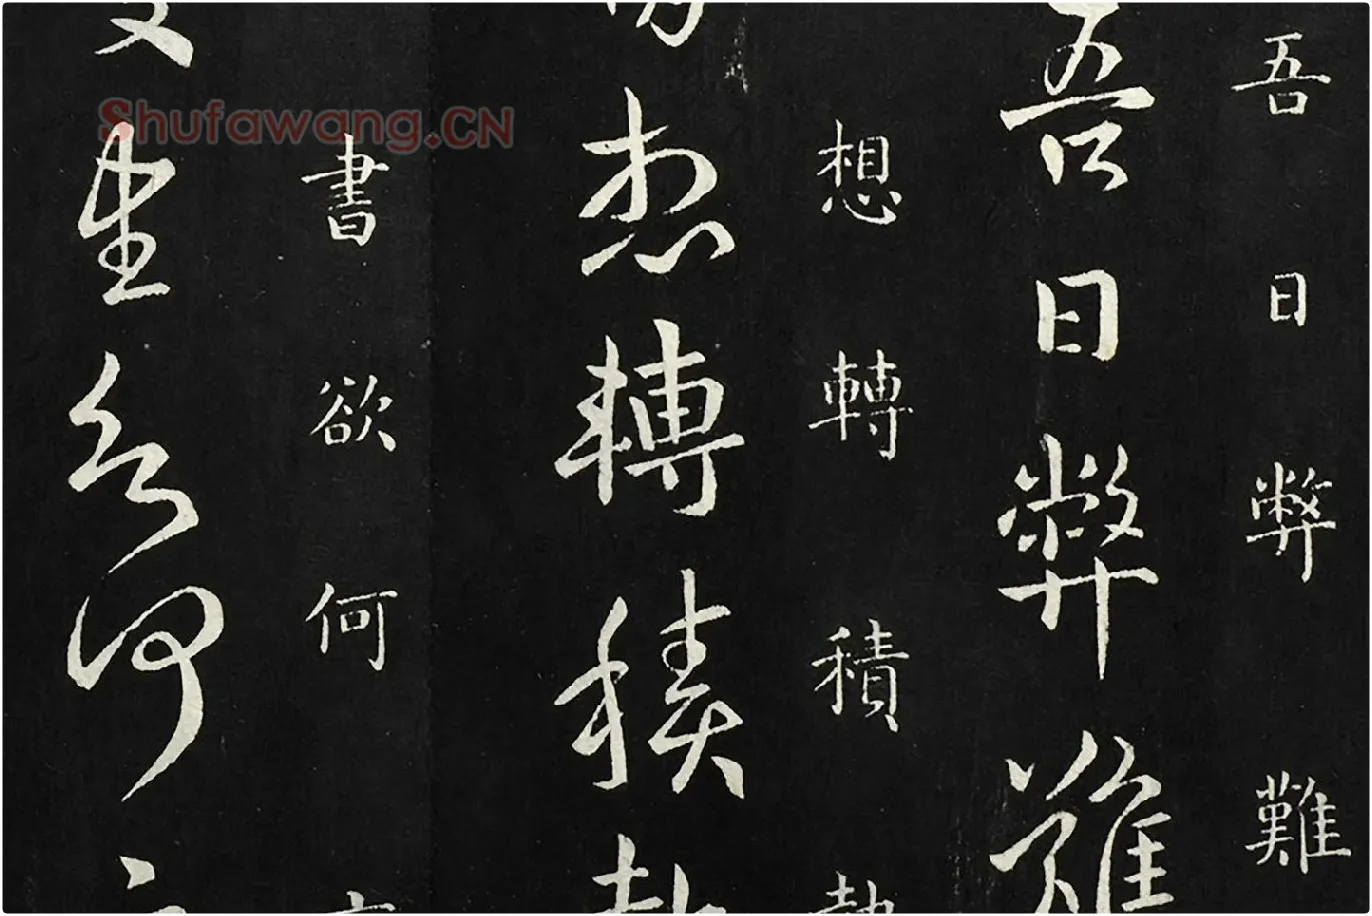 吾日弊難
吾日弊難
想轉積
想轉積
書欲何
書欲何
Shufawang.CN